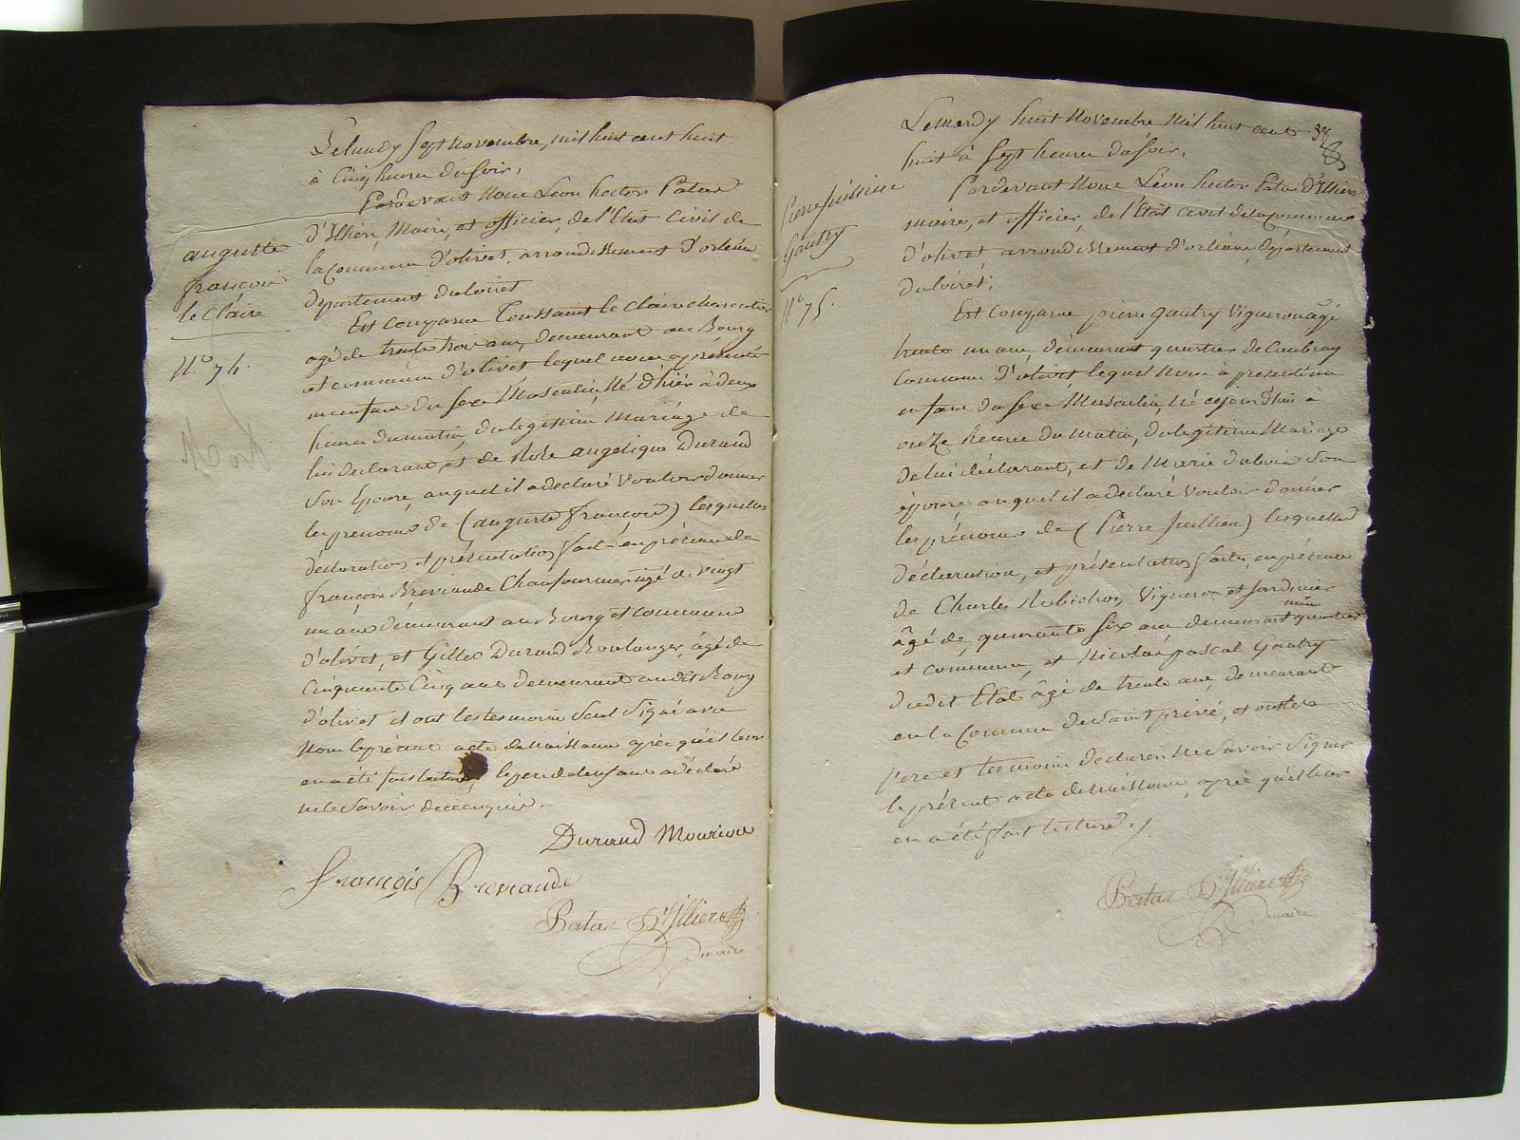 Le lundy Sept novembre, mil huit cent huit
à Cinq heures du soir,
Pardevant nous Leon hector Patas
d'Illiers, Maire, et officier, de l'Etat Civil de
la Commune d'olivet, arrondissement d'orléans
departement du loiret
auguste
francois
le Claire
N.o 74.
Est Comparu Toussaint le Claire charcutier
agé de trente trois ans, demeurant au Bourg
et commune d'olivet lequel nous a présenté
un enfant du sexe Masculin, Né d'hier à deux
heures du matin, du legitime Mariage de
lui declarant, et de Rose angelique Durand
son Epouse, auquel il a declaré vouloir donner
les prenoms de (auguste françois) lesquelles
déclaration, et présentation, faite en présence de
françois Breviande Chaufournier, agé de vingt
un ans demeurant au Bourg et commune
d'olivet, et Gilles Durand Boulanger, agé de
Cinquante Cinq ans demeurant audit Bourg
d'olivet et ont les temoins seul signé avec
nous le présent acte de naissance après qu'il leur
en a été fait lecture, le pere de l'enfant a déclaré
ne le savoir de ce enquis.
Durand Mourion
françois Breviande
Patas D'Illiers
maire
Le mardy huit Novembre Mil huit cent
huit à Sept heures du soir,
Pardevant Nous Léon hector Patas D'Illiers
maire, et officier, de l'Etat civil de la Commune
d'olivet arrondissement d'orléans, Département
du loiret,
Pierre Jullien
Gautry
N.o 75.
Est Comparu pierre gautry Vigneron agé
trente un ans, demeurant quartier de Caubray
Commune d'olivet lequel Nous a présenté un
enfant du sexe Masculin, né cejourd'hui à
onze heures du matin, du legitime Mariage
de lui déclarant, et de Marie dubois son
épouse, auquel il a declaré vouloir donner
les prénoms de (Pierre Jullien) lesquelles
déclaration, et présentation, faite en présence
de Charles Robichon, Vigneron et Jardinier
âgé de quarante six ans demeurant même quartier
et commune, et Nicolas pascal Gautry
dudit Etat âgé de trente ans, demeurant
en la Commune de Saint privé, et ont les
pere et temoins declaré ne savoir signer
le présent acte de naissance après qu'il leur
en a été fait lecture./.
Patas D'Illiers
maire